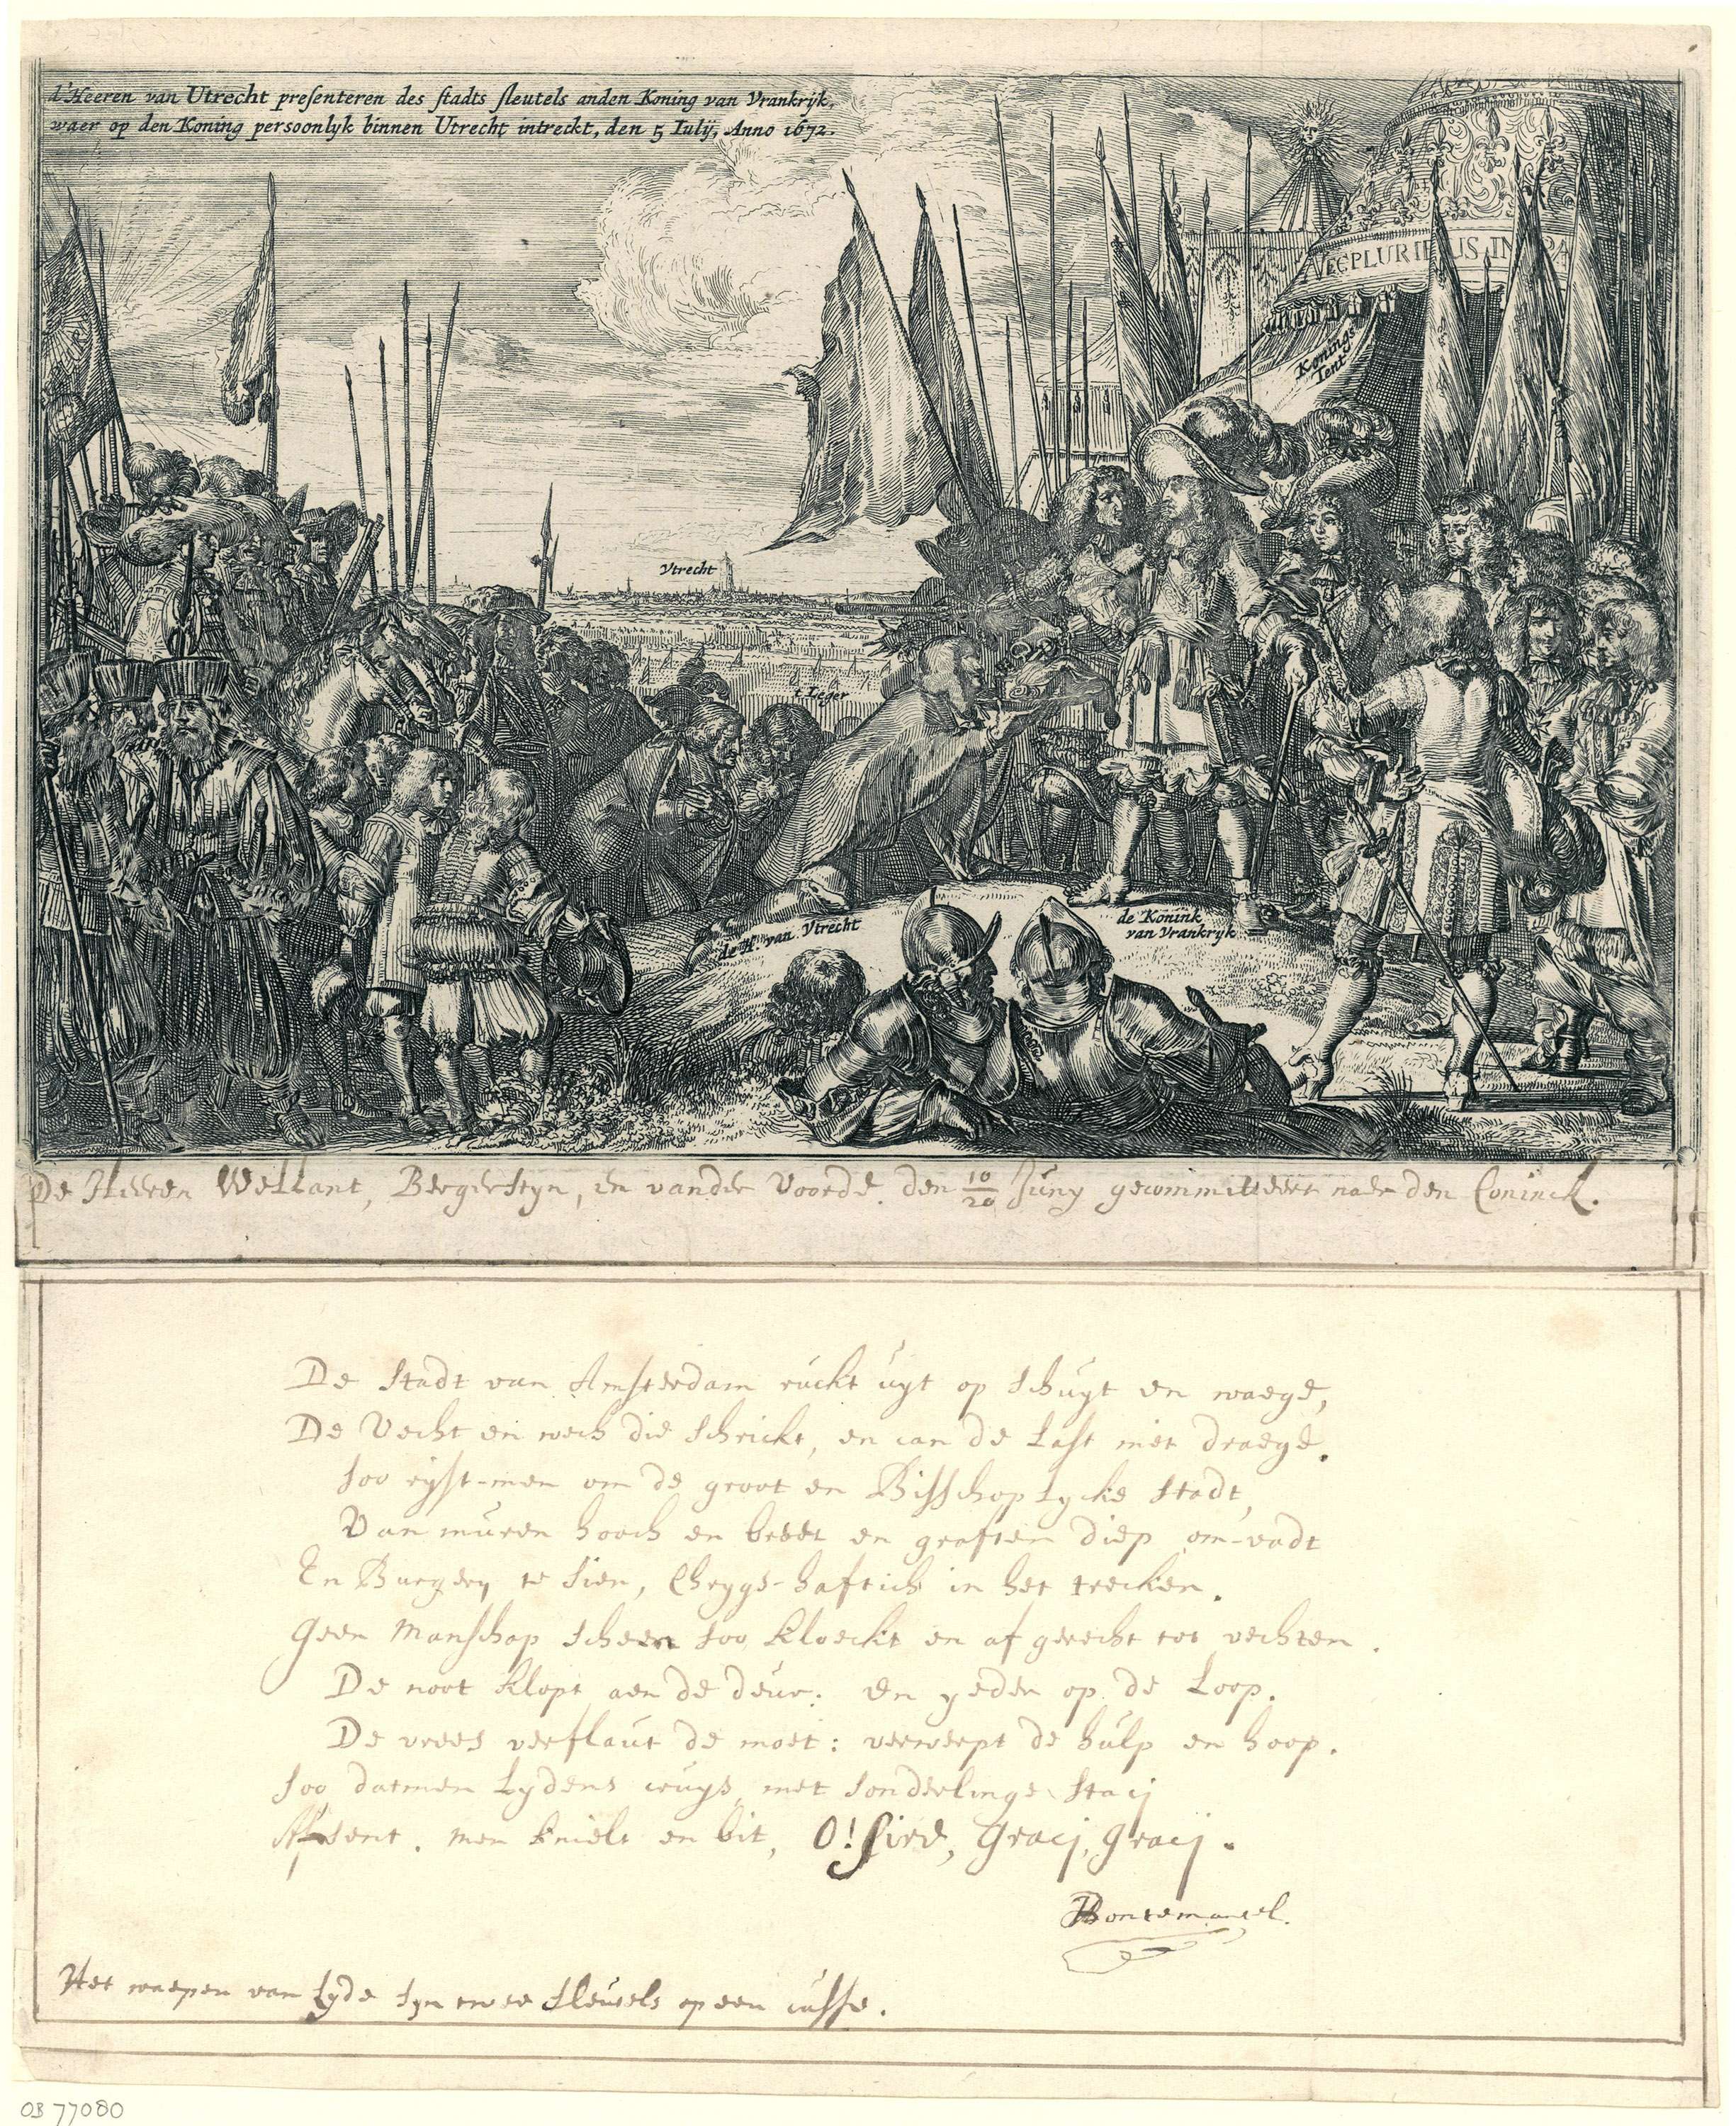 d'Heeren van Utrecht presenteren des stadts sleutels anden Koning van Vrankrijk,
waer op den Koning persoonlyk binnen Utrecht intreckt, den 5 Iulij, Anno 1672.
NECPLURIBUS IMPA
Konings
Tent
Vtrecht
't Leger
de H. van Vtrecht
de Konink
van Vrankryk
De Heeren Wellant, Bergesteyn, en vander Voorde. den 10/20 Juny gecommitteert naer den Coninck.
De Stadt van Amsterdam ruckt uyt op schuyt en waege,
De Vecht en wech die schrickt, en can de Last niet draege.
soo ryst-men om de groot en Bisschoplycke stadt,
Van muren hooch en breet en graften diep om-vadt
En Burgery te sien, Chrygs-haftich in het trecken.
Geen Manschap scheen soo kloeckt en af gerecht tot vechten.
De noot klopt aen de deur: en yeder op de Loop.
De vrees verflaut de moet: verwerpt de hulp en hoop.
soo datmen Lydens cruys, met sonderlinge staci
sent. men knielt en bit, O! Sire, Graci, Graci.
Bontemantel.
Het waepen van Lyde syn twee sleutels op een cusse.
OB 77080